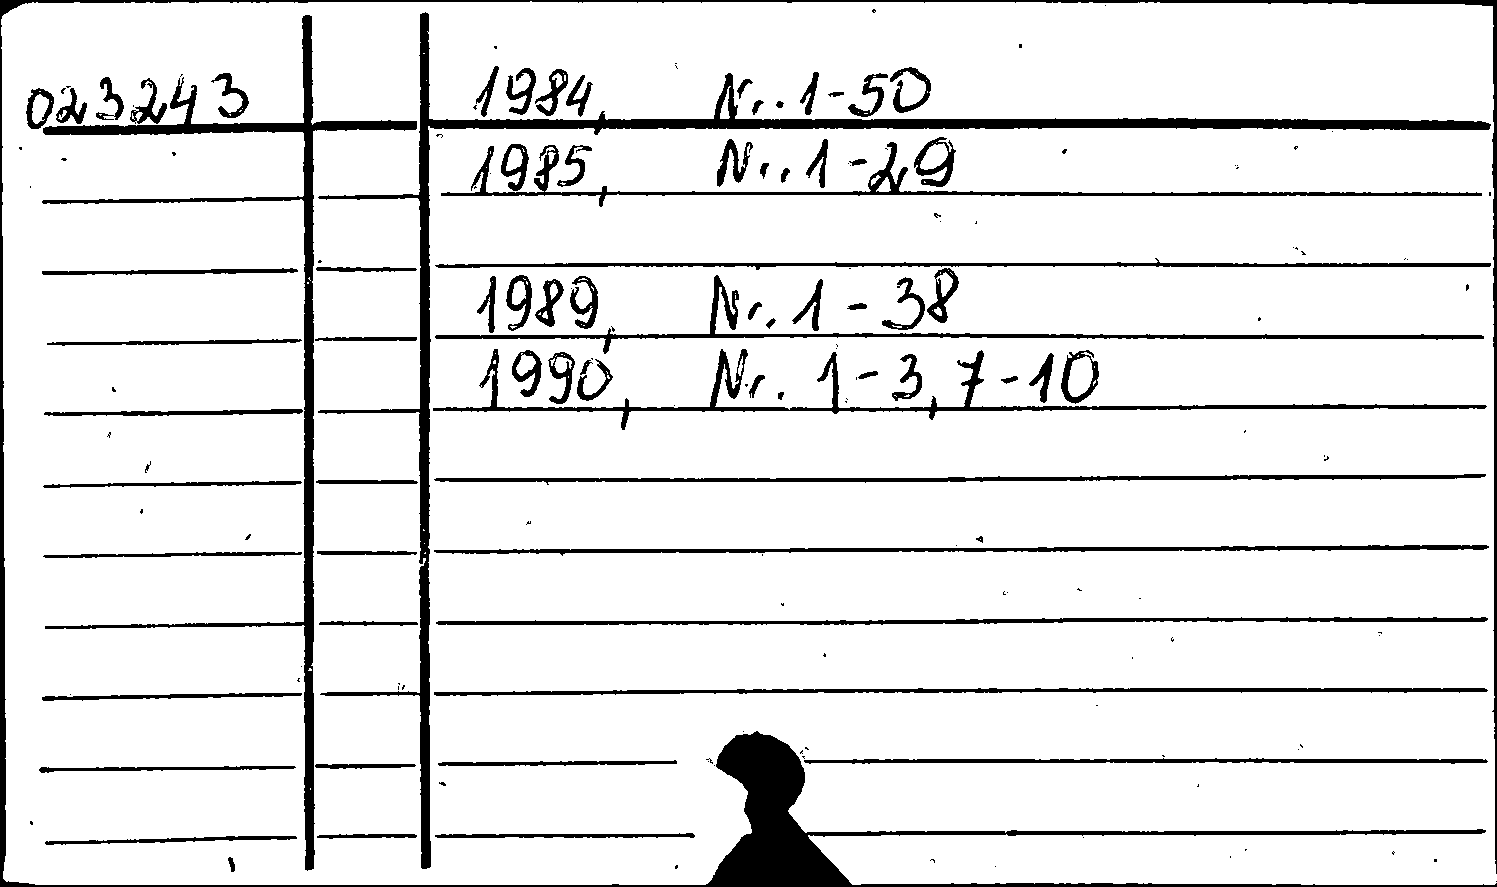 023243 1984, Nr. 1-50
1985, Nr. 1-29
1989, Nr. 1-38
1990, Nr. 1-3, 7-10